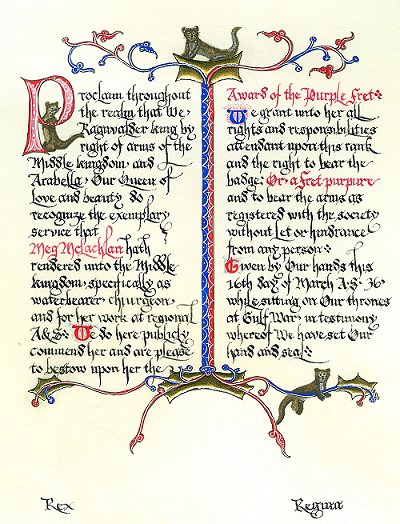 Proclaim throughout
the realm that We
Ragnvalder king by
right of arms of the
Middle kingdom and
Arabella, Our Queen of
Love and beauty do
recognize the exemplary
service that
Meg McLachlan hath
rendered unto the Middle
kingdom, specifically as
waterbearer, chiurgeon,
and for her work at regional
A&S. We do here publicly
commend her and are please
to bestow upon her the
Award of the Purple Fret.
We grant unto her all
rights and responsibilities
attendant upon this rank
and the right to bear the
badge: Or, a Fret purpure
and to bear the arms as
registered with the society
without Let or hindrance
from any person.
Given by Our hands this
16th day of March A.S. 36
while sitting on Our thrones
at Gulf War, in testimony
whereof We have set Our
hand and seal.
Rex
Regina